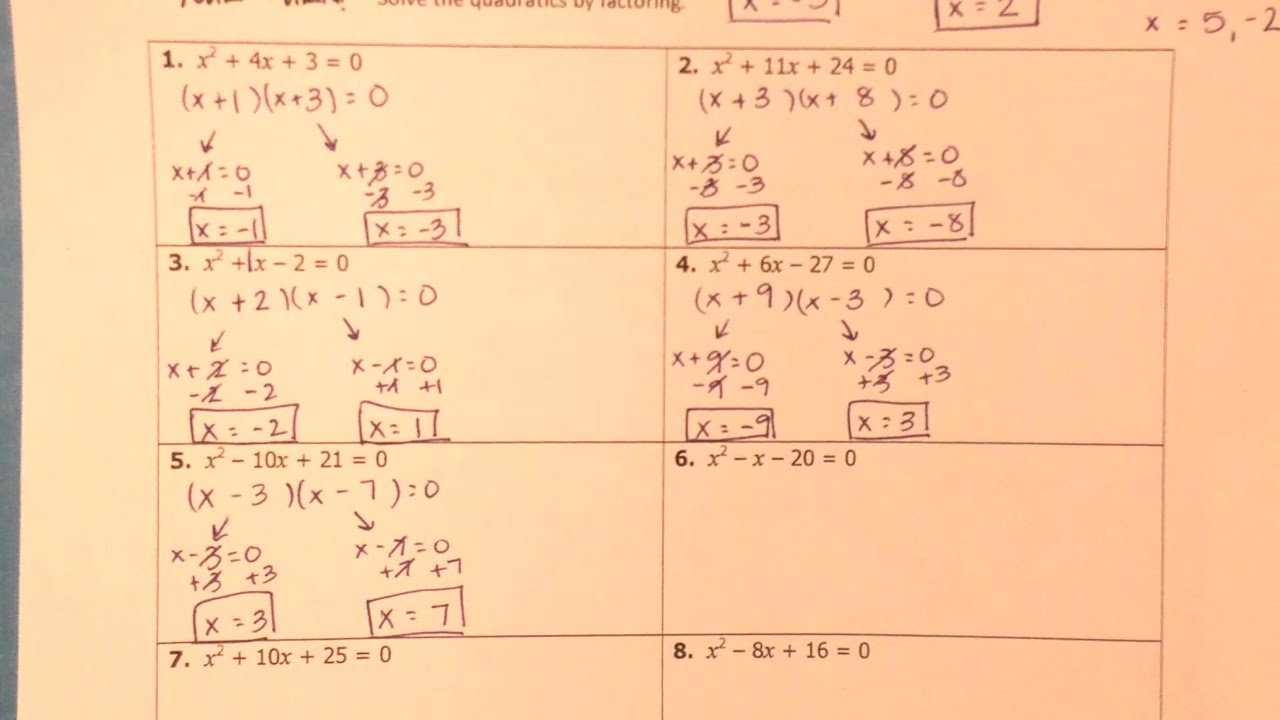 Solve the quadratics by factoring.
x = 2
x = 5, -2
1. x² + 4x + 3 = 0
(x + 1)(x + 3) = 0
x + 1 = 0 x + 3 = 0
-1 -1 -3 -3
x = -1 x = -3
2. x² + 11x + 24 = 0
(x + 3)(x + 8) = 0
x + 3 = 0 x + 8 = 0
-3 -3 -8 -8
x = -3 x = -8
3. x² + 1x – 2 = 0
(x + 2)(x - 1) = 0
x + 2 = 0 x - 1 = 0
-2 -2 +1 +1
x = -2 x = 1
4. x² + 6x – 27 = 0
(x + 9)(x - 3) = 0
x + 9 = 0 x - 3 = 0
-9 -9 +3 +3
x = -9 x = 3
5. x² – 10x + 21 = 0
(x - 3)(x - 7) = 0
x - 3 = 0 x - 7 = 0
+3 +3 +7 +7
x = 3 x = 7
6. x² – x – 20 = 0
7. x² + 10x + 25 = 0
8. x² – 8x + 16 = 0